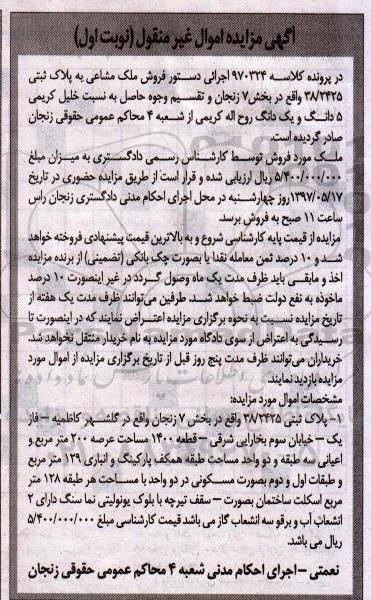 آگهی مزایده اموال غیر منقول (نوبت اول)
در پرونده کلاسه ۹۷۰۳۲۴ اجرائی دستور فروش ملک مشاعی به پلاک ثبتی
۳۸/۳۴۲۵ واقع در بخش۷ زنجان و تقسیم وجوه حاصل به نسبت خلیل کریمی
۵ دانگ و یک دانگ روح اله کریمی از شعبه ۴ محاکم عمومی حقوقی زنجان
صادر گردیده است.
ملک مورد فروش توسط کارشناس رسمی دادگستری به میزان مبلغ
۵/۴۰۰/۰۰۰/۰۰۰ ریال ارزیابی شده و قرار است از طریق مزایده حضوری در تاریخ
۱۳۹۷/۰۵/۱۷روز چهارشنبه در محل اجرای احکام مدنی دادگستری زنجان راس
ساعت ۱۱ صبح به فروش برسد.
مزایده از قیمت پایه کارشناسی شروع و به بالاترین قیمت پیشنهادی فروخته خواهد
شد و ۱۰ درصد ثمن معامله نقدا یا بصورت چک بانکی (تضمینی) از برنده مزایده
اخذ و مابقی باید ظرف مدت یک ماه وصول گردد؛ در غیر اینصورت ۱۰ درصد
ماخوذه به نفع دولت ضبط خواهد شد. طرفین می‌توانند ظرف مدت یک هفته از
تاریخ مزایده نسبت به نحوه برگزاری مزایده اعتراض نمایند که در اینصورت تا
رسیدگی به اعتراض از سوی دادگاه مورد مزایده به نام خریدار منتقل نخواهد شد.
خریداران می‌توانند ظرف مدت پنج روز قبل از تاریخ برگزاری مزایده از اموال مورد
مزایده بازدید نمایند.
مشخصات اموال مورد مزایده:
۱- پلاک ثبتی ۳۸/۳۴۲۵ واقع در بخش ۷ زنجان واقع در گلشهر کاظمیه – فاز
یک – خیابان سوم بخارایی شرقی – قطعه ۱۴۰۰ مساحت عرصه ۲۰۰ متر مربع و
اعیانی سه طبقه و دو واحد مساحت طبقه همکف پارکینگ و انباری ۱۲۹ متر مربع
و طبقات اول و دوم بصورت مسکونی در دو واحد با مساحت هر طبقه ۱۲۸ متر
مربع اسکلت ساختمان بصورت – سقف تیرچه با بلوک یونولیتی نما سنگ دارای ۲
انشعاب آب و برق و سه انشعاب گاز می باشد قیمت کارشناسی مبلغ ۵/۴۰۰/۰۰۰/۰۰۰
ریال می باشد.
نعمتی – اجرای احکام مدنی شعبه ۴ محاکم عمومی حقوقی زنجان